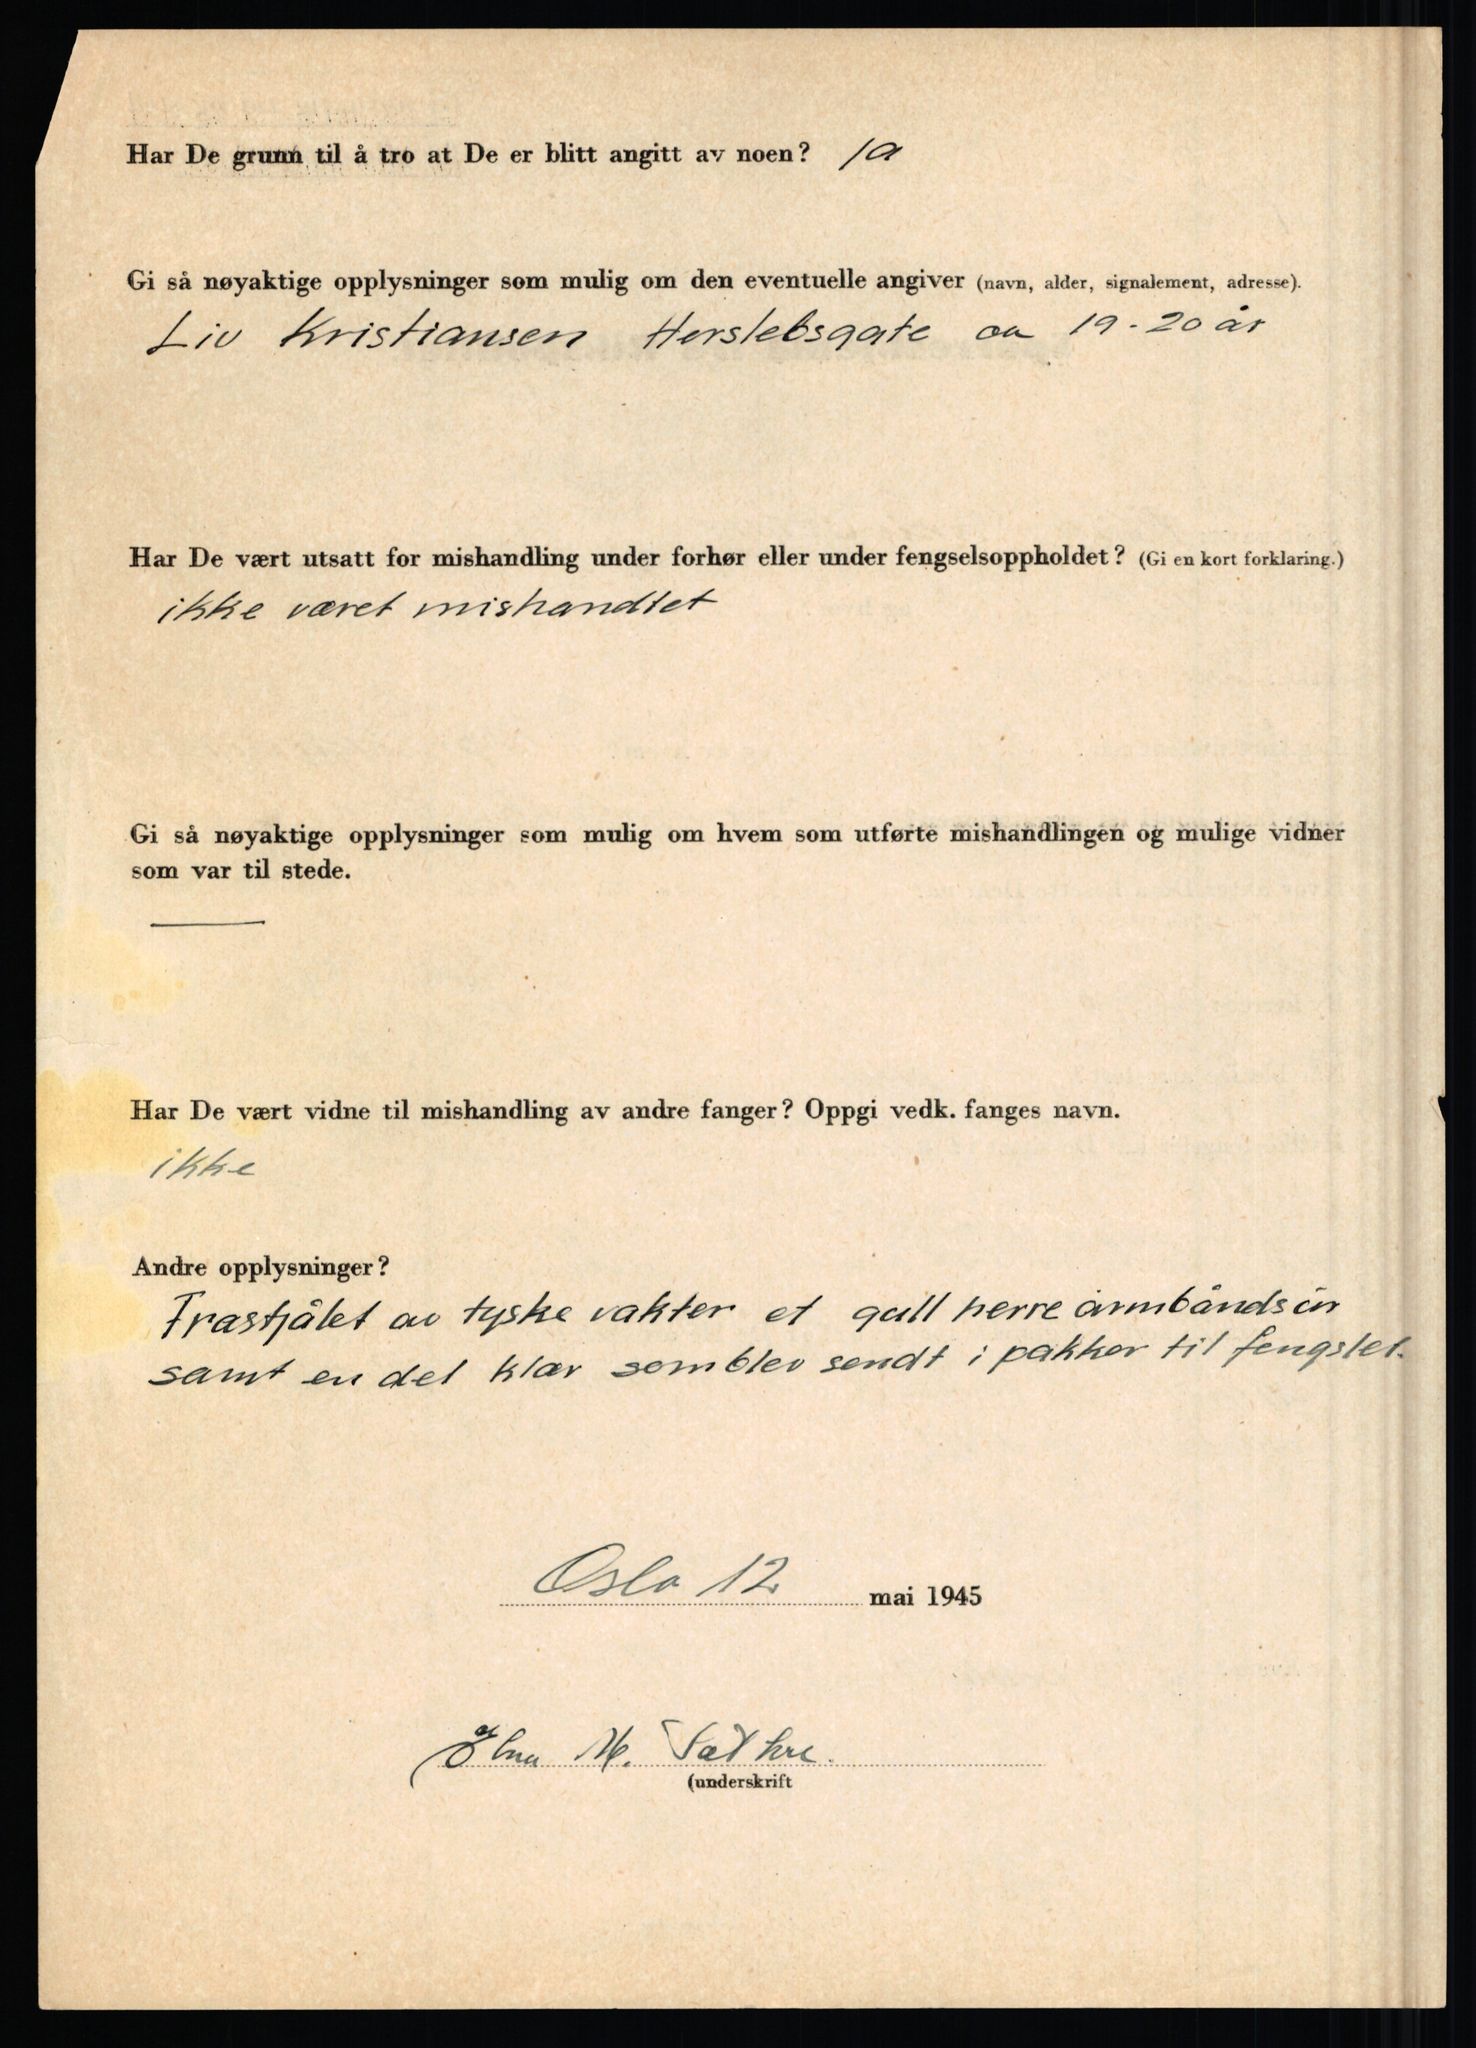 Har De grunn til å tro at De er blitt angitt av noen? ja
Gi så nøyaktige opplysninger som mulig om den eventuelle angiver (navn, alder, signalement, adresse).
Liv Kristiansen Herslebsgate ca 19-20 år
Har De vært utsatt for mishandling under forhør eller under fengselsoppholdet? (Gi en kort forklaring.)
ikke været mishandlet
Gi så nøyaktige opplysninger som mulig om hvem som utførte mishandlingen og mulige vidner
som var til stede.
Har De vært vidne til mishandling av andre fanger? Oppgi vedk. fanges navn.
ikke
Andre opplysninger?
Frastjålet av tyske vakter et gull herre armbåndsur
samt en del klær som blev sendt i pakker til fengslet.
Oslo 12. mai 1945
Elna M. Sæthre.
(underskrift